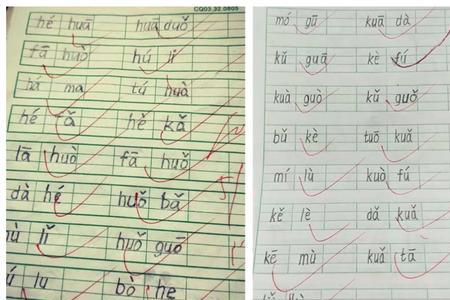 CQ03.32.0805
hé huā huā duǒ
fā huǒ hú li
má ma tú huà
hé fǎ hě kǎ
lā huò fā huǒ
dà hé huǒ bǎ
lǐ huǒ guō
lu bò he
mó gū kuā dà
kǔ guā kè fú
kuà guò kǔ guǒ
bǔ kè tuō kuǎ
mí lù kuò fú
kě lè dǎ kuǎ
kē mù kuǎ tā